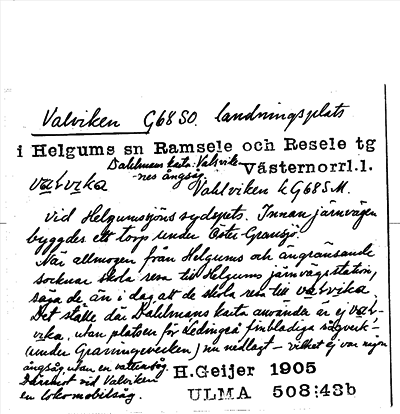 Valviken G68SO. landningsplats
i Helgums sn Ramsele och Resele tg
Dahlmans karta: Valvik-
nes ångsåg. Västernorrl.l.
valvika Vahlviken h G68S.M.
vid Helgumssjöns sydspets. Innan järnvägen
byggdes ett torp under Öster Gransjö.
När allmogen från Helgums och angränsande
socknar skola resa till Helgums järnvägsstation,
säga de än i dag att de skola resa till valvika.
Det ställe där Dahlmans karta använda är ej val-
vika, utan platsen för Ledingeå finbladiga sågverk
(under Graningeverken) nu nedlagt – vilket ej var någon
ångsåg, utan en vattensåg.
Däremot vid Valviken
en lokomobilsåg.
H.Geijer 1905
ULMA 508:43b